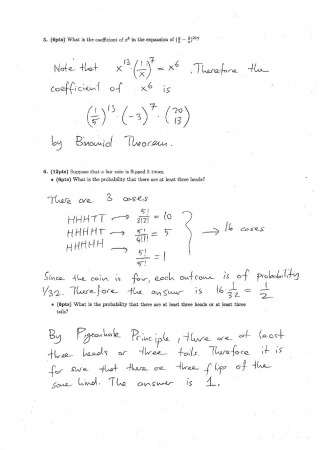 5. (6pts) What is the coefficient of x⁶ in the expansion of (x/5 − 3/x)²⁰?
Note that x¹³·(1/x)⁷ = x⁶. Therefore the
coefficient of x⁶ is
(1/5)¹³·(−3)⁷·(20 13)
by Binomial Theorem.
6. (12pts) Suppose that a fair coin is flipped 5 times.
• (6pts) What is the probability that there are at least three heads?
There are 3 cases
HHHTT → 5!/3!2! = 10
HHHHT → 5!/4!1! = 5 → 16 cases
HHHHH → 5!/5! = 1
Since the coin is fair, each outcome is of probability
1/32. Therefore the answer is 16·1/32 = 1/2
• (6pts) What is the probability that there are at least three heads or at least three
tails?
By Pigeonhole Principle, there are at least
three heads or three tails. Therefore it is
for sure that there are three flips of the
same kind. The answer is 1.